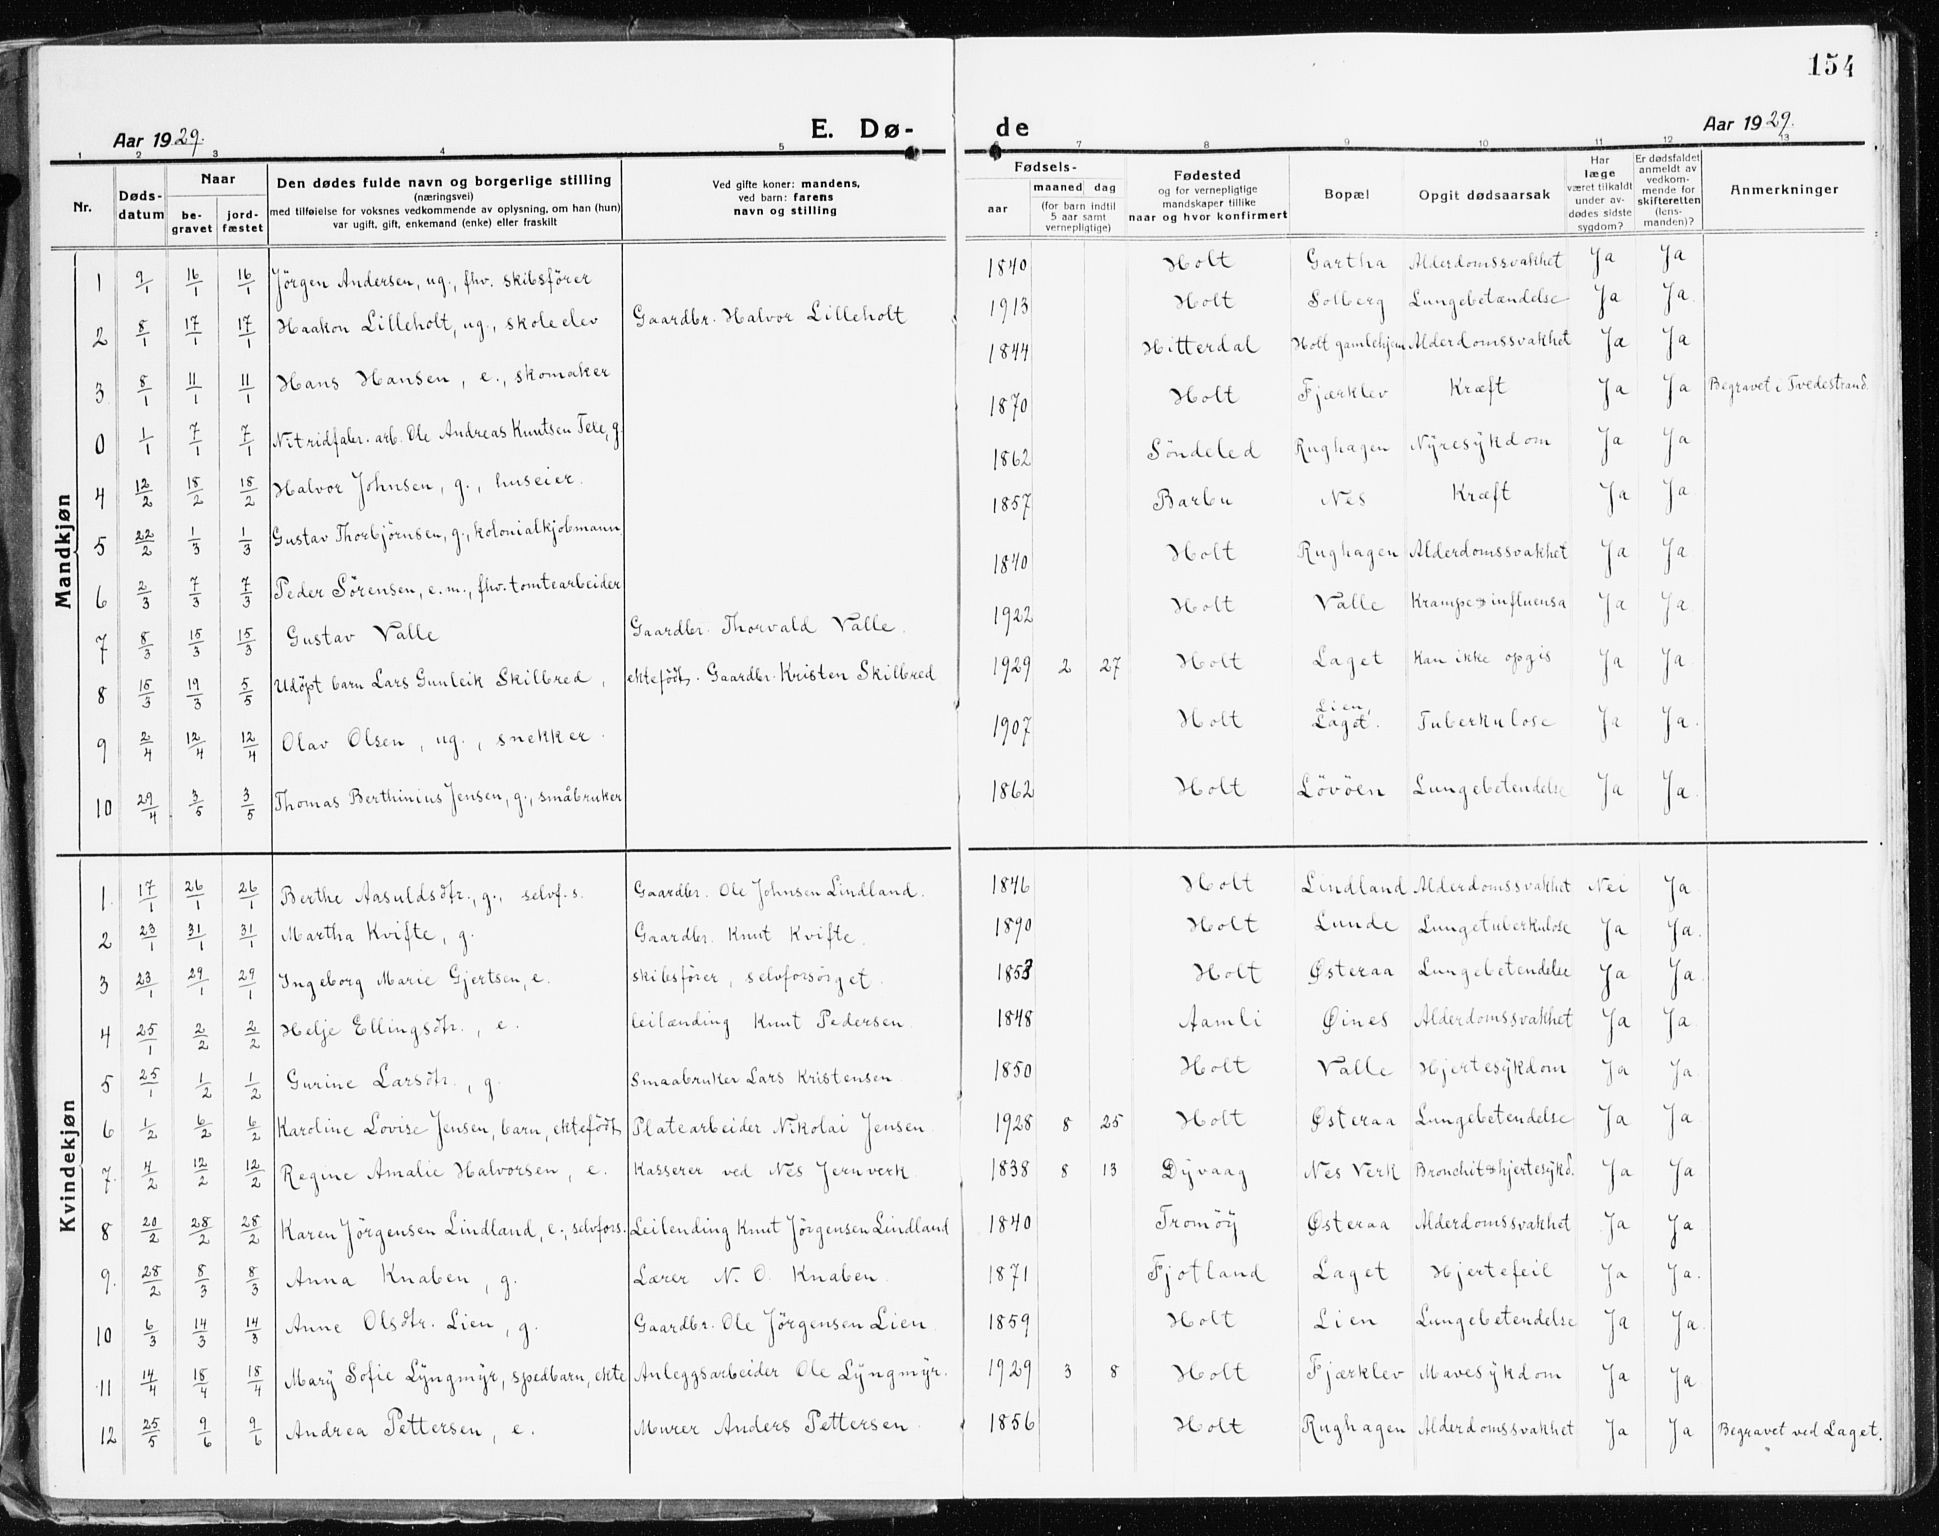 154
Aar 1929.
E. Dø-
de
Aar 1929.
1 2 3 4 5 6 7 8 9 10 11 12 13
Nr.
Døds-datum
Naar
be-gravet
jord-fæstet
Den dødes fulde navn og borgerlige stilling
(næringsvei)
med tilføielse for voksnes vedkommende av oplysning, om han (hun)
var ugift, gift, enkemand (enke) eller fraskilt
Ved gifte koner: mandens,
ved barn: farens
navn og stilling
Fødsels-
aar
maaned dag
(for barn indtil
5 aar samt
vernepligtige)
Fødested
og for vernepligtige
mandskaper tillike
naar og hvor konfirmert
Bopæl
Opgit dødsaarsak
Har
læge
været tilkaldt
under av-
dødes sidste
sygdom?
Er dødsfaldet
anmeldt av
vedkom-
mende for
skifteretten
(lens-
manden)?
Anmerkninger
Mandkjøn
1 9/1 16/1 16/1 Jörgen Andersen, ug., fhv. skibsförer 1840 Holt Gartha Alderdomssvakhet Ja Ja
2 8/1 17/1 17/1 Haakon Lilleholt, ug., skoleelev Gaardbr. Halvor Lilleholt 1913 Holt Solberg Lungebetændelse Ja Ja.
3 8/1 11/1 11/1 Hans Hansen, e., skomaker 1844 Hitterdal Holt gamlehjem Alderdomssvakhet Ja Ja
0 1/1 7/1 7/1 Nitridfabr. arb. Ole Andreas Knutsen Texe, g. 1870 Holt Fjærklev Kræft Ja Ja Begravet i Tvedestrand.
4 12/2 18/2 18/2 Halvor Johnsen, g., huseier. 1862 Söndeled Rughagen Nÿresÿkdom Ja Ja
5 22/2 1/3 1/3 Gustav Thorbjörnsen, g., kolonialkjøbmann 1857 Barbu Nes Kræft Ja Ja
6 2/3 7/3 7/3 Peder Sörensen, e.m., fhv. tomtearbeider 1840 Holt Rughagen Alderdomssvakhet Ja Ja
7 8/3 15/3 15/3 Gustav Valle Gaardbr. Thorvald Valle. 1922 Holt Valle Krampe & influensa Ja Ja
8 15/3 19/3 5/5 Udöpt barn Lars Gunleik Skilbred, ektefödt. Gaardbr. Kristen Skilbred 1929 2 27 Holt Laget Kan ikke opgis Ja Ja.
9 2/4 12/4 12/4 Olav Olsen, ug., snekker. 1907 Holt Lien, Laget. Tuberkulose Ja Ja.
10 29/4 3/5 3/5 Thomas Berthinius Jensen, g., småbruker 1862 Holt Lövöen Lungebetendelse Ja Ja.
Kvindekjøn
1. 17/1 26/1 26/1 Berthe Aasuldsdtr., g., selvf.s. Gaardbr. Ole Johnsen Lindland. 1846 Holt Lindland Alderdomssvakhet Nei Ja.
2 23/1 31/1 31/1 Martha Kvifte, g. Gaardbr. Knut Kvifte. 1890 Holt Lunde Lungetuberkulose Ja Ja.
3 23/1 29/1 29/1 Ingeborg Marie Gjertsen, e. skibsfører, selvforsørget. 1853 Holt Østeraa Lungebetendelse Ja Ja.
4 25/1 2/2 2/2 Helje Ellingsdtr., e. leilænding Knut Pedersen. 1848 Aamli Øines Alderdomssvakhet Ja Ja.
5 25/1 1/2 1/2 Gurine Larsdtr., g. Smaabruker Lars Kristensen 1850 Holt Valle Hjertesÿkdom Ja Ja.
6 1/2 6/2 6/2 Karoline Lovise Jensen, barn, ektefödt Platearbeider Nikolai Jensen. 1928 8 25 Holt Østeraa Lungebetendelse Ja Ja.
7. 4/2 12/2 12/2 Regine Amalie Halvorsen, e. Kasserer ved Nes Jernverk. 1838 8 13 Dÿvaag Nes Verk Bronchit & hjertesÿkd. Ja Ja.
8 20/2 28/2 28/2 Karen Jörgensen Lindland, e., selvfors. Leilending Knut Jörgensen Lindland 1840 Tromöÿ Østeraa Alderdomssvakhet Ja Ja
9. 28/2 8/3 8/3 Anna Knaben, g. Lærer N. O. Knaben. 1871 Fjotland Laget Hjertefeil Ja Ja.
10 6/3 14/3 14/3 Anne Olsdtr. Lien, g. Gaardbr. Ole Jörgensen Lien. 1859 Holt Lien Lungebetendelse Ja Ja.
11 14/4 18/4 18/4 Marÿ Sofie Lÿngmÿr, spedbarn, ekte Anleggsarbeider Ole Lÿngmÿr. 1929 3 8 Holt Fjærklev Mavesÿkdom Ja Ja.
12 25/5 9/6 9/6 Andrea Pettersen, e. Murer Anders Pettersen. 1856 Holt Rughagen Alderdomssvakhet Ja Ja Begravet ved Laget.